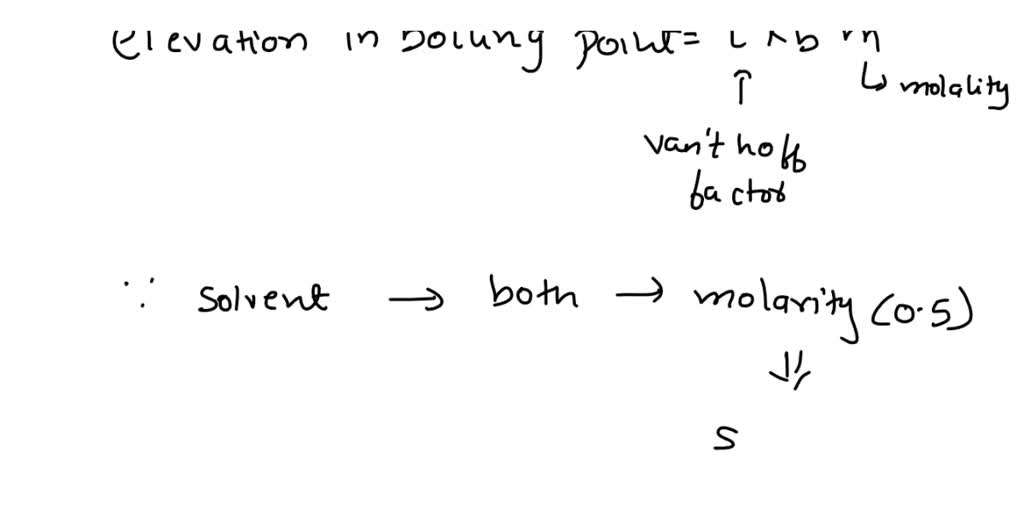 elevation in boiling point = i Kb m
↑ ↳ molality
van't hoff
factor
∵ solvent → both → molarity (0.5)
⇓
S